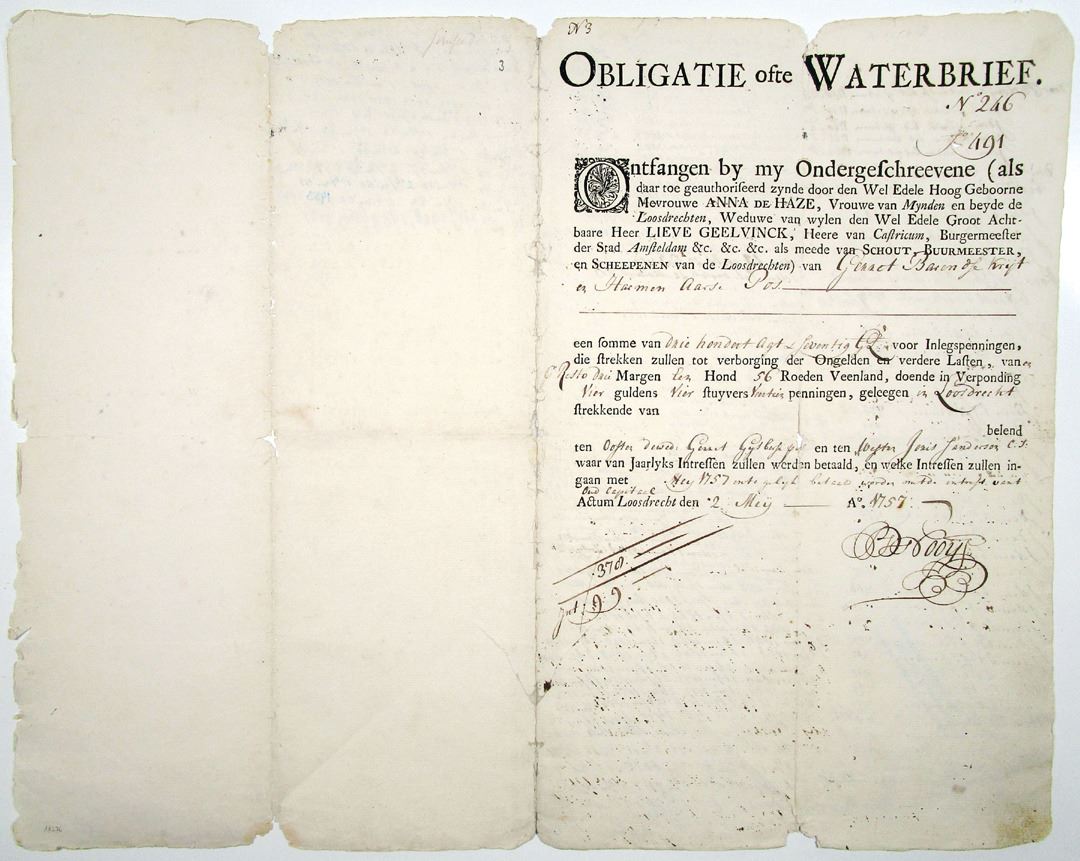 N 3
3
OBLIGATIE ofte WATERBRIEF.
No 246
Fo 491
Ontfangen by my Ondergeſchreevene (als
daar toe geauthoriſeerd zynde door den Wel Edele Hoog Geboorne
Mevrouwe ANNA DE HAZE, Vrouwe van Mynden en beyde de
Loosdrechten, Weduwe van wylen den Wel Edele Groot Acht-
baare Heer LIEVE GEELVINCK, Heere van Caſtricum, Burgermeeſter
der Stad Amſteldam &c. &c. &c. als meede van SCHOUT, BUURMEESTER,
en SCHEEPENEN van de Loosdrechten) van Gerret Barendse
en Harmen Aarse Pos
een ſomme van drie hondert Agt Seventig voor Inlegspenningen,
die ſtrekken zullen tot verborging der Ongelden en verdere Laſten, van
drie Margen Een Hond 56 Roeden Veenland, doende in Verponding
Vier guldens Vier ſtuyvers penningen, geleegen in Loosdrecht
ſtrekkende van
belend
ten Ooſten Gerret en ten Weſten
waar van Jaarlyks Intreſſen zullen werden betaald, en welke Intreſſen zullen in-
gaan met Mey 1757 betaald werden
Oud Capitael
Actum Loosdrecht den 2 Meij Ao. 1757
378